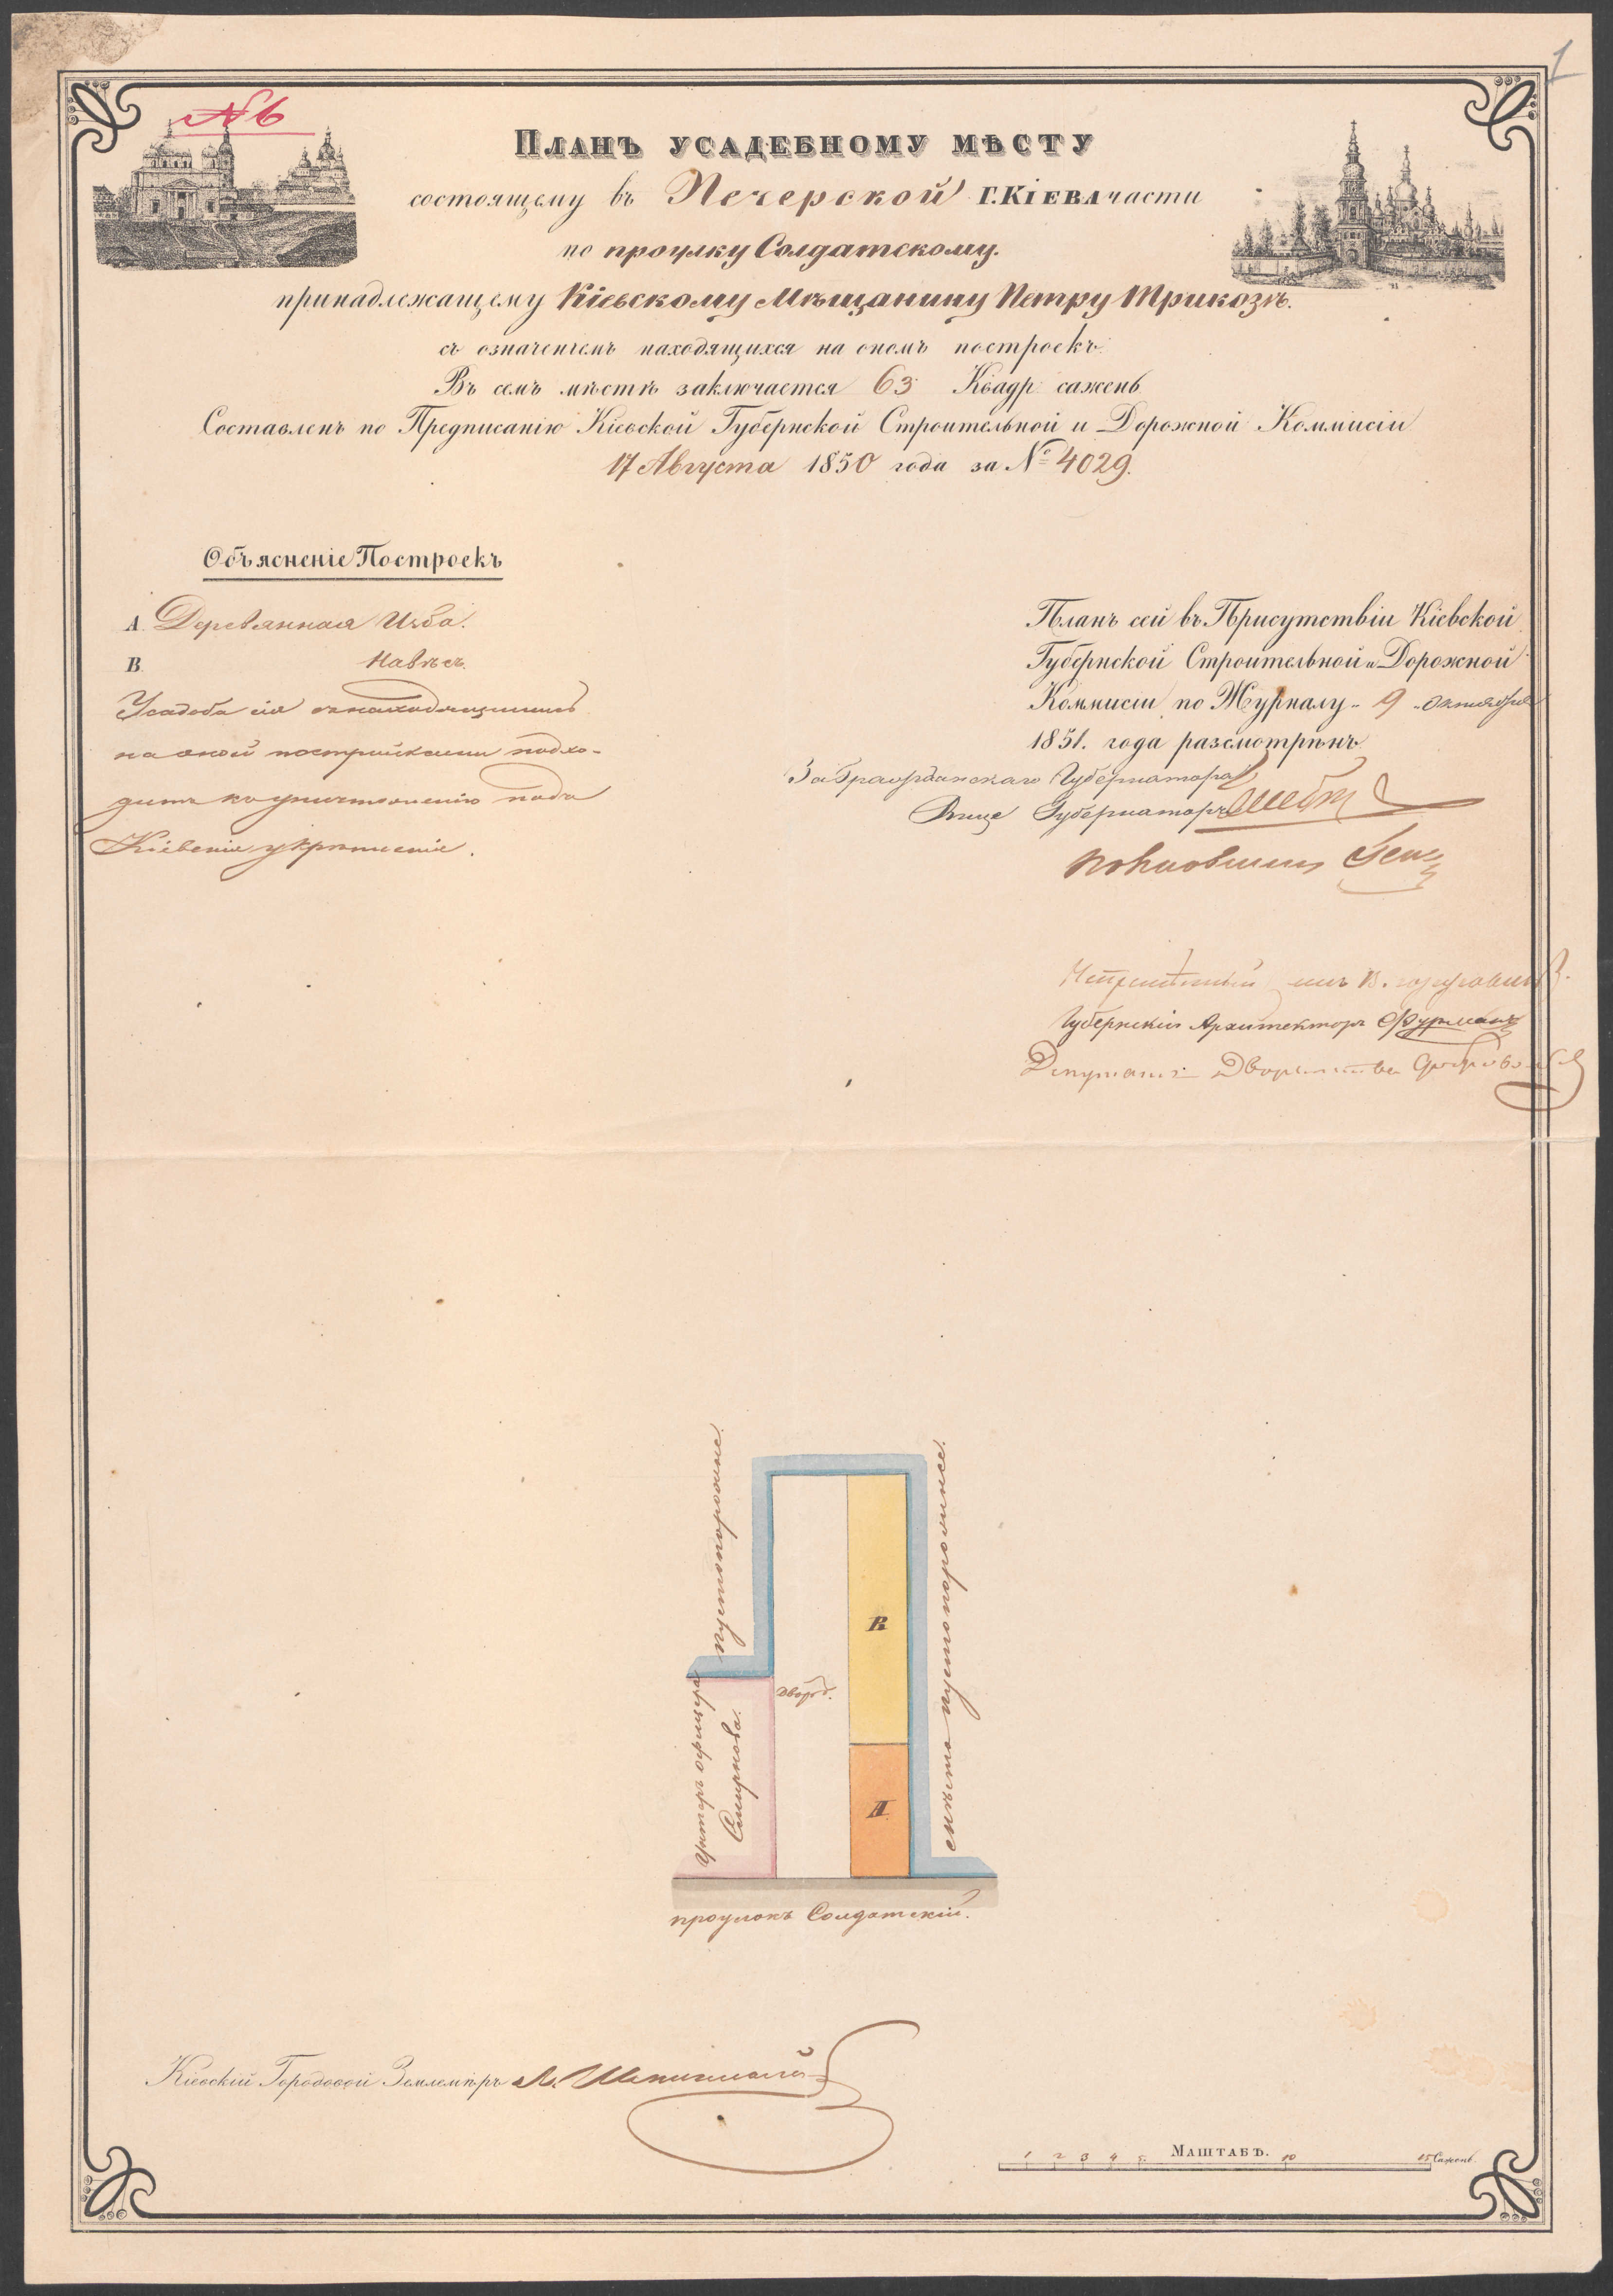 1
№ 6
Планъ усадебному мѣсту
состоящему въ Печерской г. Кіева части
по проулку Солдатскому.
принадлежащему Кіевскому Мѣщанину Петру Трикозѣ.
съ означеніемъ находящихся на ономъ построекъ.
Въ семъ мѣстѣ заключается 63 Квадр: сажень
Составленъ по Предписанію Кіевской Губернской Строительной и Дорожной Коммисіи
17 Августа 1850 года за № 4029.
Объясненіе Построекъ
А. Деревянная Изба.
В. Навѣсъ.
Усадьба сія съ находящимися
на оной постройками подхо-
дитъ къ уничтоженію подъ
Кіевскія укрѣпленія.
Планъ сей въ Присутствіи Кіевской
Губернской Строительной и Дорожной
Коммисіи по Журналу 9 октября
1851. года разсмотрѣнъ
За Гражданскаго Губернатора
Вице Губернаторъ
Губернскій Архитекторъ
Депутатъ Дворянства
пустопорожнее.
мѣсто пустопорожнее.
В
дворъ.
Унтеръ офицера
Смирнова.
А
проулокъ Солдатскій.
Кіевскій Городовой Землемѣръ
Маштабъ.
1 2 3 4 5 10 15 Сажень.